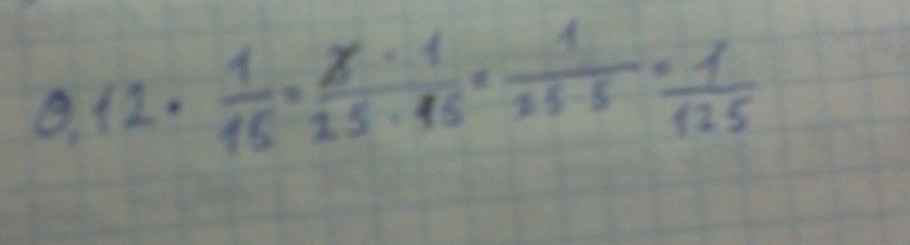 0,12 · 1/15 = 3 · 1/25 · 15 = 1/25 · 5 = 1/125